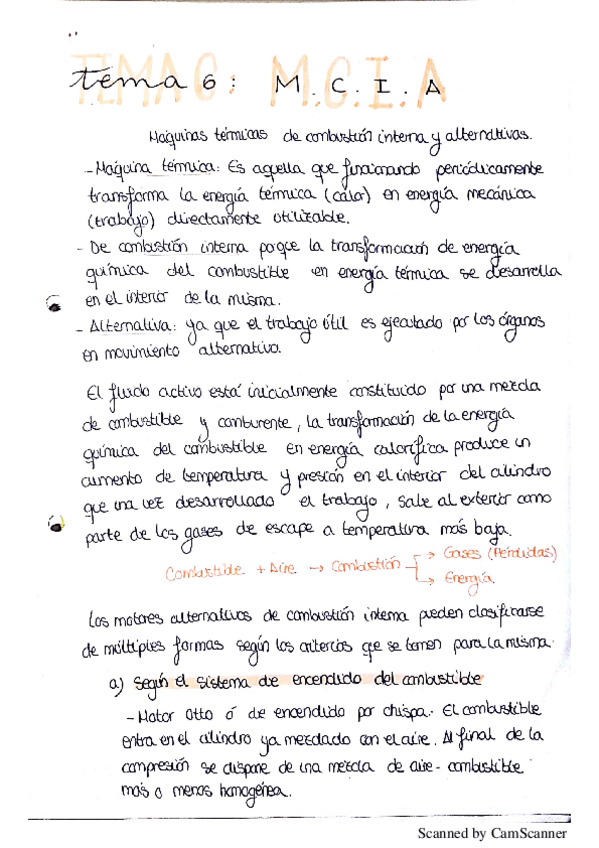 tema 6: M.C.I.A
Maquinas térmicas de combustión interna y alternativas.
- Máquina térmica: Es aquella que funcionando periódicamente
transforma la energía térmica (calor) en energía mecánica
(trabajo) directamente utilizable.
- De combustión interna porque la transformación de energía
química del combustible en energía térmica se desarrolla
en el interior de la misma.
- Alternativa: ya que el trabajo útil es ejecutado por los órganos
en movimiento alternativo.
El fluido activo está inicialmente constituido por una mezcla
de combustible y comburente, la transformación de la energía
química del combustible en energía calorífica produce un
aumento de temperatura y presión en el interior del cilindro
que una vez desarrollado el trabajo, sale al exterior como
parte de los gases de escape a temperatura más baja.
Combustible + Aire → Combustión → Gases (Pérdidas)
→ Energía
Los motores alternativos de combustión interna pueden clasificarse
de múltiples formas según los criterios que se tomen para la misma.
a) Según el sistema de encendido del combustible
- Motor Otto ó de encendido por chispa. El combustible
entra en el cilindro ya mezclado con el aire. Al final de la
compresión se dispone de una mezcla de aire - combustible
más o menos homogénea.
Scanned by CamScanner